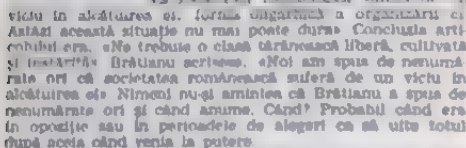 viciu în alcătuirea ei, forma oligarhică a organizării ei
Astăzi această situație nu mai poate dura» Concluzia arti-
colului era. «Ne trebuie o clasă țărănească liberă, cultivată
și înstărită» Brătianu scrisese. «Noi am spus de nenumă-
rate ori că societatea românească suferă de un viciu în
alcătuirea ei» Nimeni nu-și amintea că Brătianu a spus de
nenumărate ori și când anume. Când? Probabil când era
în opoziție sau în perioadele de alegeri ca să uite totul
după aceia când venia la putere